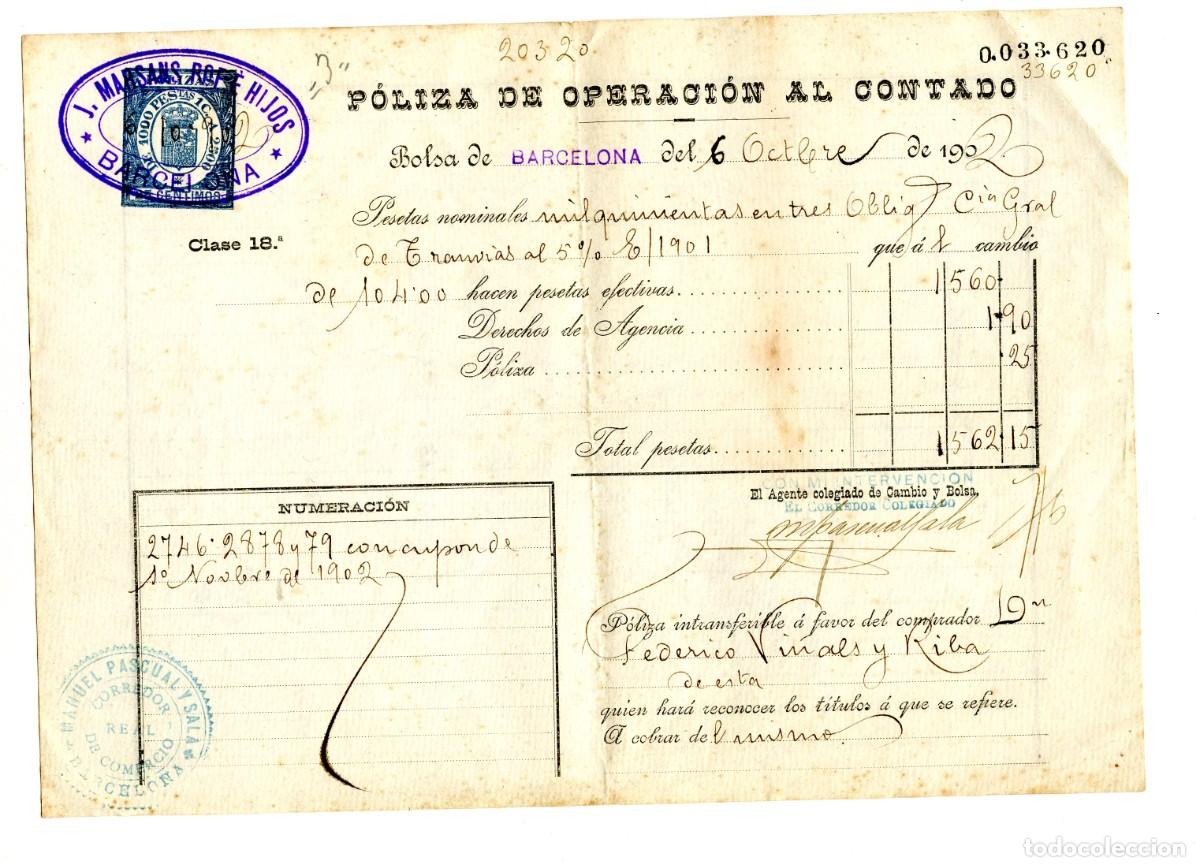 20320
"3"
0.033.620
33620
J. MARSANS ROF E HIJOS
BARCELONA
PÓLIZA DE OPERACIÓN AL CONTADO
Bolsa de BARCELONA del 6 Octbre de 1902
Pesetas nominales mil quinientas en tres Oblig Cia Gral
Clase 18.ª
de Tranvias al 5% E/1901 que á l cambio
de 104.00 hacen pesetas efectivas 1560
Derechos de Agencia 1.90
Póliza .25
Total pesetas 1562.15
CON MI INTERVENCIÓN
El Agente colegiado de Cambio y Bolsa,
EL CORREDOR COLEGIADO
MPascualSala
NUMERACIÓN
2746.2878 y 79 con cupon de
1º Novbre de 1902
Póliza intransferible á favor del comprador Dn
Federico Viñals y Riba
de esta
quien hará reconocer los títulos á que se refiere.
A cobrar del mismo.
MANUEL PASCUAL Y SALÁ
CORREDOR
REAL
DE COMERCIO
BARCELONA
todocoleccion